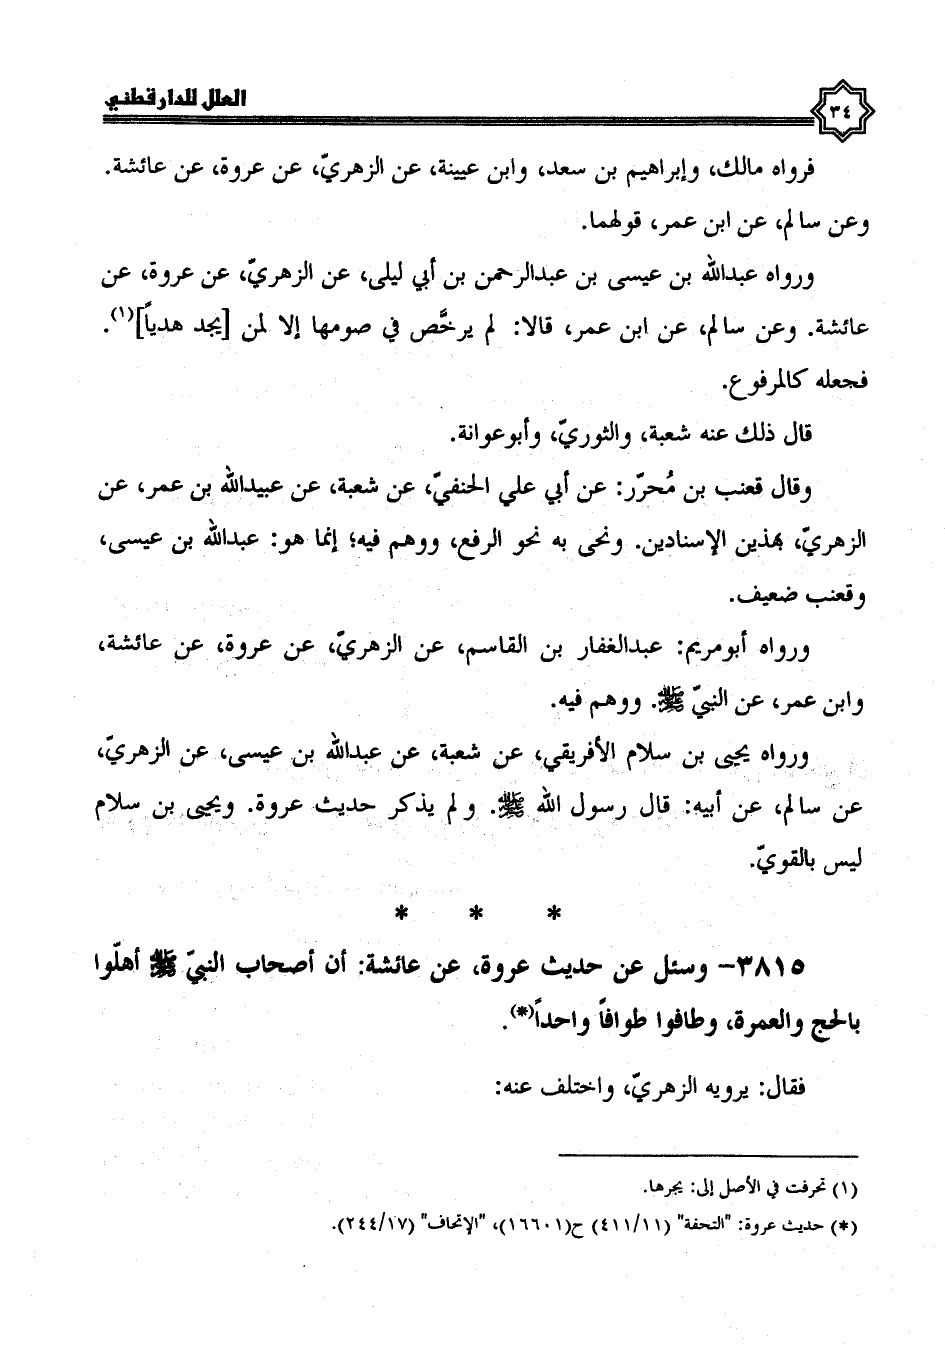 العلل للدارقطني
٣٤
فرواه مالك، وإبراهيم بن سعد، وابن عيينة، عن الزهريّ، عن عروة، عن عائشة.
وعن سالم، عن ابن عمر، قولهما.
ورواه عبدالله بن عيسى بن عبدالرحمن بن أبي ليلى، عن الزهريّ، عن عروة، عن
عائشة. وعن سالم، عن ابن عمر، قالا: لم يرخَّص في صومها إلا لمن [يجد هدياً](١).
فجعله كالمرفوع.
قال ذلك عنه شعبة، والثوريّ، وأبوعوانة.
وقال قعنب بن مُحرّر: عن أبي علي الحنفيّ، عن شعبة، عن عبيدالله بن عمر، عن
الزهريّ، بهذين الإسنادين. ونحى به نحو الرفع، ووهم فيه؛ إنما هو: عبدالله بن عيسى،
وقعنب ضعيف.
ورواه أبومريم: عبدالغفار بن القاسم، عن الزهريّ، عن عروة، عن عائشة،
وابن عمر، عن النبيّ ﷺ. ووهم فيه.
ورواه يحيى بن سلام الأفريقي، عن شعبة، عن عبدالله بن عيسى، عن الزهريّ،
عن سالم، عن أبيه: قال رسول الله ﷺ. ولم يذكر حديث عروة. ويحيى بن سلام
ليس بالقويّ.
* * *
٣٨١٥- وسئل عن حديث عروة، عن عائشة: أن أصحاب النبيّ ﷺ أهلّوا
بالحج والعمرة، وطافوا طوافاً واحداً(*).
فقال: يرويه الزهريّ، واختلف عنه:
(١) تحرفت في الأصل إلى: يجرها.
(*) حديث عروة: "التحفة" (٤١١/١١) ح(١٦٦٠١)، "الإتحاف" (٢٤٤/١٧).